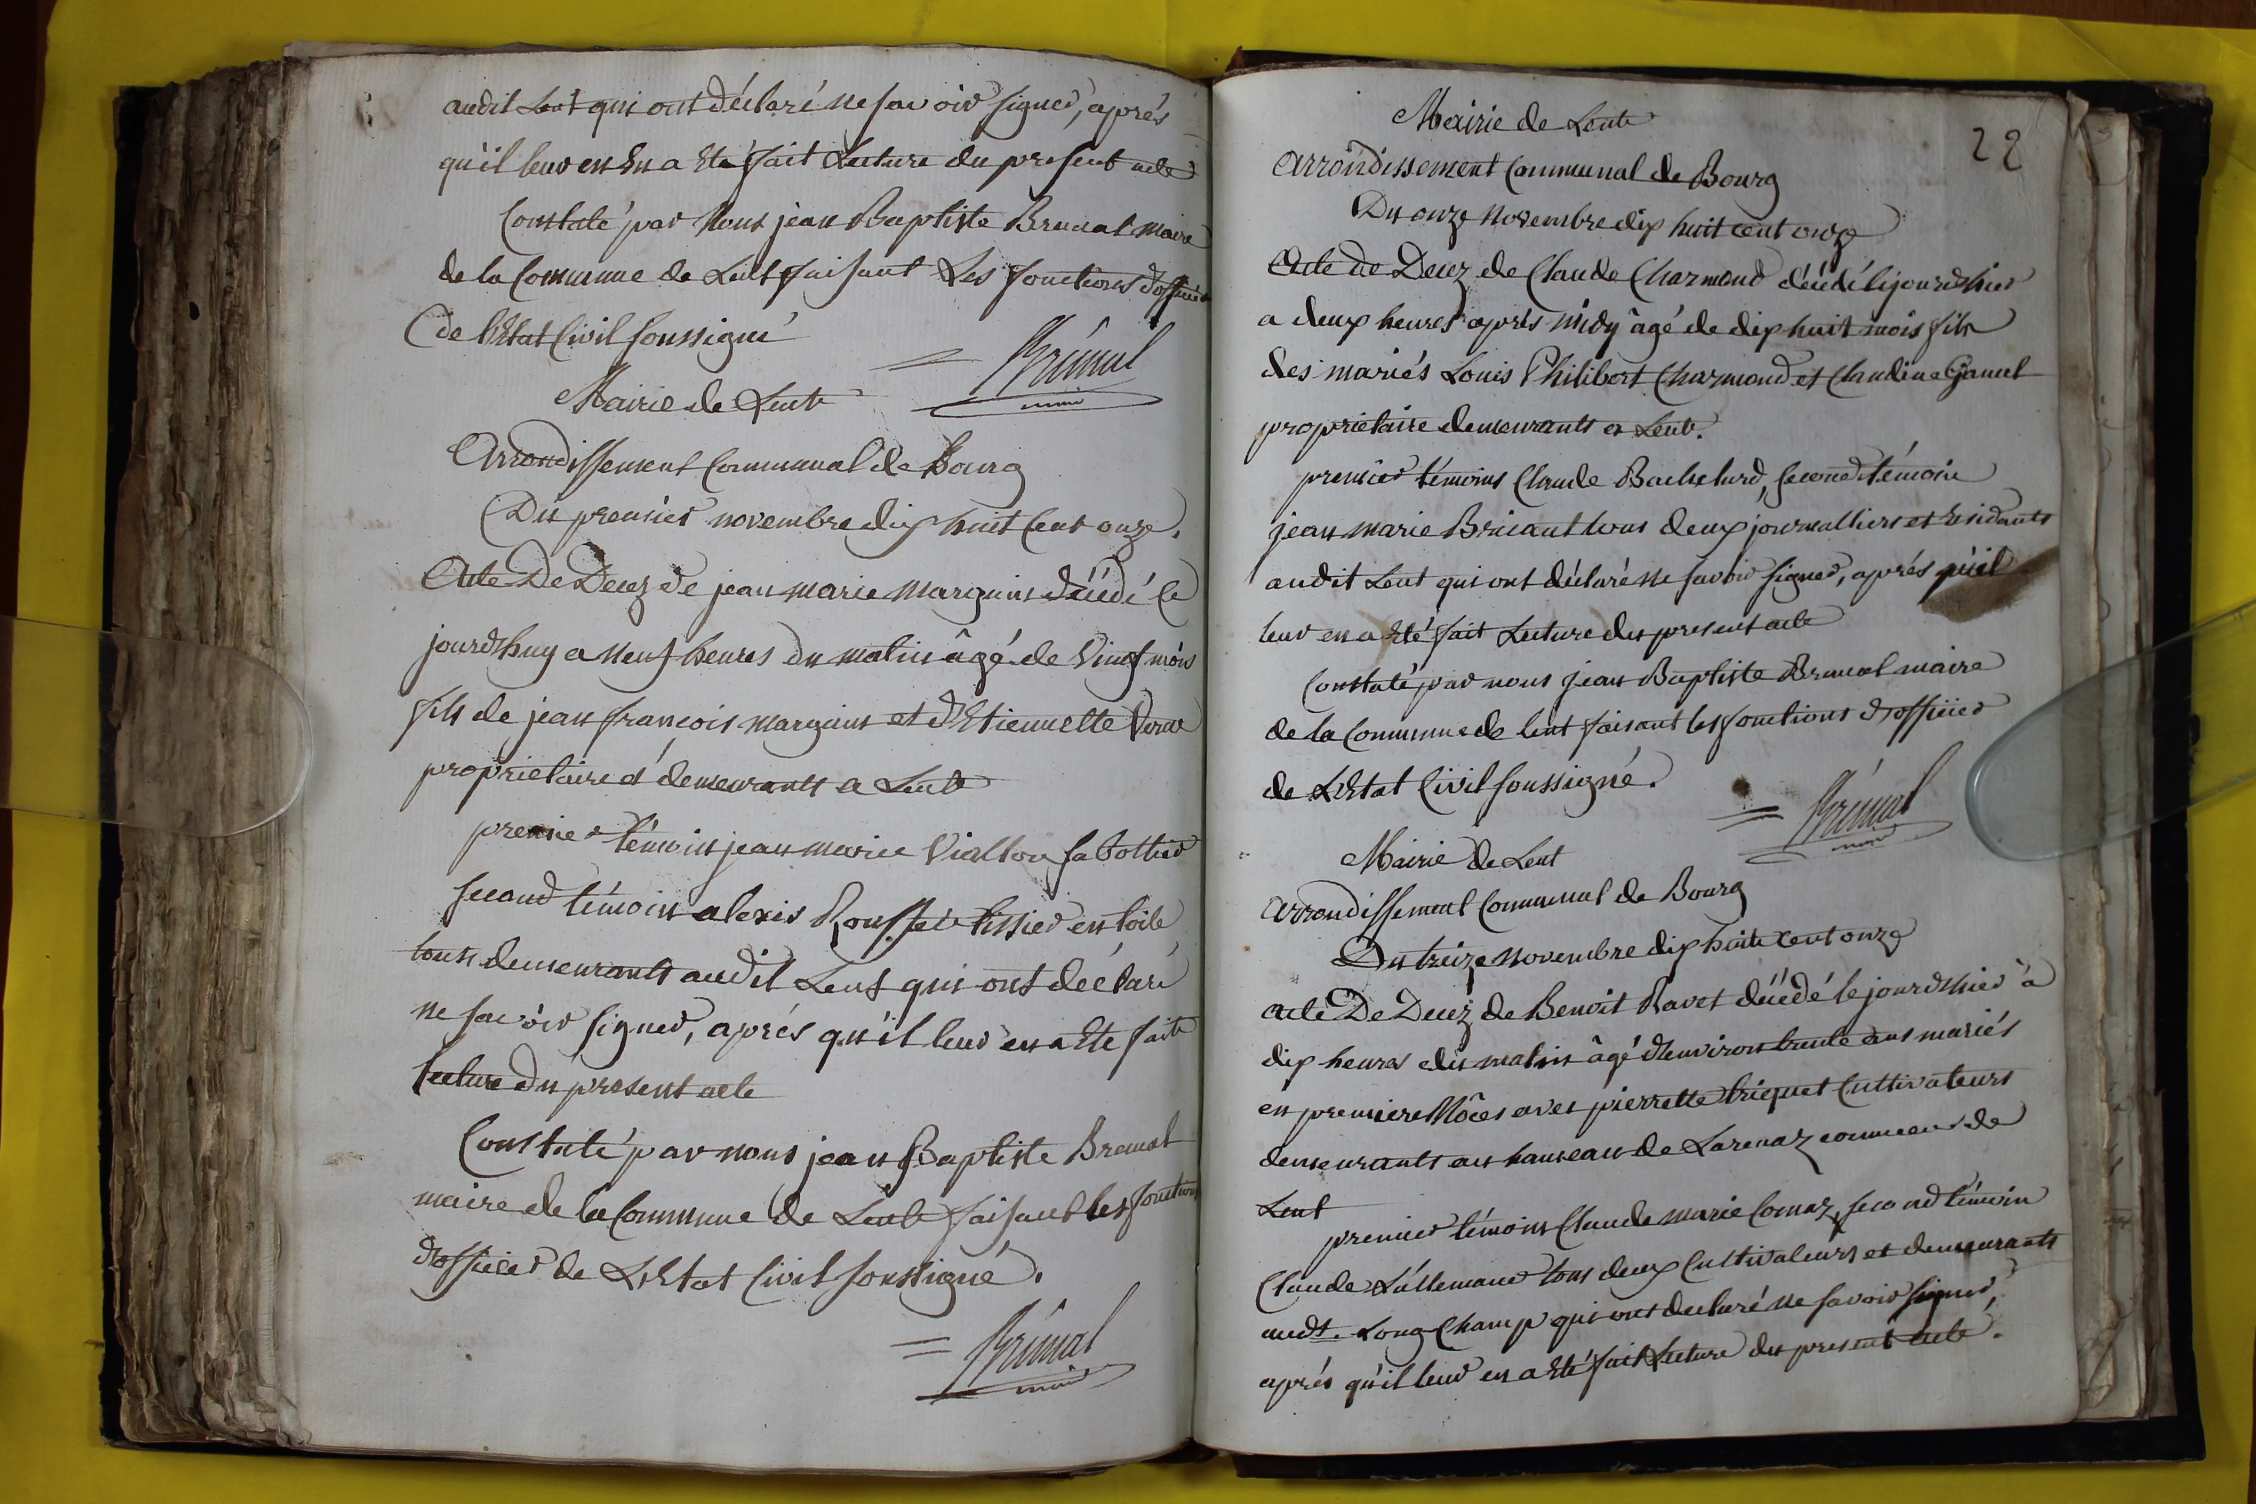 audit Lent qui ont déclaré ne savoir signer, aprés
qu'il leur en En a Eté fait Lecture du present acte
Constaté par Nous jean Baptiste Brunal maire
de la Commune de Lent faisant Les fonctions d'officier
de l'Etat Civil soussigné
Brunal
maire
Mairie de Lent
Arrondissement Communal de Bourg
Du premier novembre dix huit Cent onze.
Acte De Decez de jean marie marguin décédé le
jourd'huy a neuf heures du matin âgé de Vingt mois
fils de jean francois marguin et d'Etiennette
proprietaire et demeurants a Lent
premier témoin jean marie Viallon sabottier
second témoin alexis Rousset tissier en toile
tous demeurants audit Lent qui ont déclaré
ne savoir signer, aprés qu'il leur en a Eté faite
lecture du present acte
Constaté par nous jean Baptiste Brunal
maire de la Commune de Lent faisant les fonctions
d'officier de L'Etat Civil soussigné.
Brunal
maire
22
Mairie de Lent
Arrondissement Communal de Bourg
Du onze Novembre dix huit cent onze
Acte de Decez de Claude Charmond décédé le jourd'hier
a deux heures aprés midy âgé de dix huit mois fils
des mariés Louis Philibert Charmond et Claudine
proprietaire demeurants a Lent.
premier témoins Claude Bachelard, second témoin
jean marie Bricaut tous deux journalliers et residants
audit Lent qui ont déclaré ne savoir signer, aprés qu'il
leur en a Eté fait Lecture du present acte
Constaté par nous jean Baptiste Brunal maire
de la Commune de lent faisant les fonctions d'officier
de L'Etat Civil soussigné.
Brunal
maire
Mairie de Lent
arrondissement Communal de Bourg
Du treize Novembre dix huit cent onze
acte De Decez de Benoit Ravet décédé le jourd'hier à
dix heures du matin âgé d'environ trente ans mariés
en premiere Nôces avec pierrette triquet Cultivateurs
demeurants au hameau de Larenaz commune de
Lent
premier témoin Claude marie Comaz, second témoin
Claude Lallemand tous deux Cultivateurs et demeurants
audt. Long Champ qui ont declaré ne savoir signer,
aprés qu'il leur en a Eté fait Lecture du present acte.